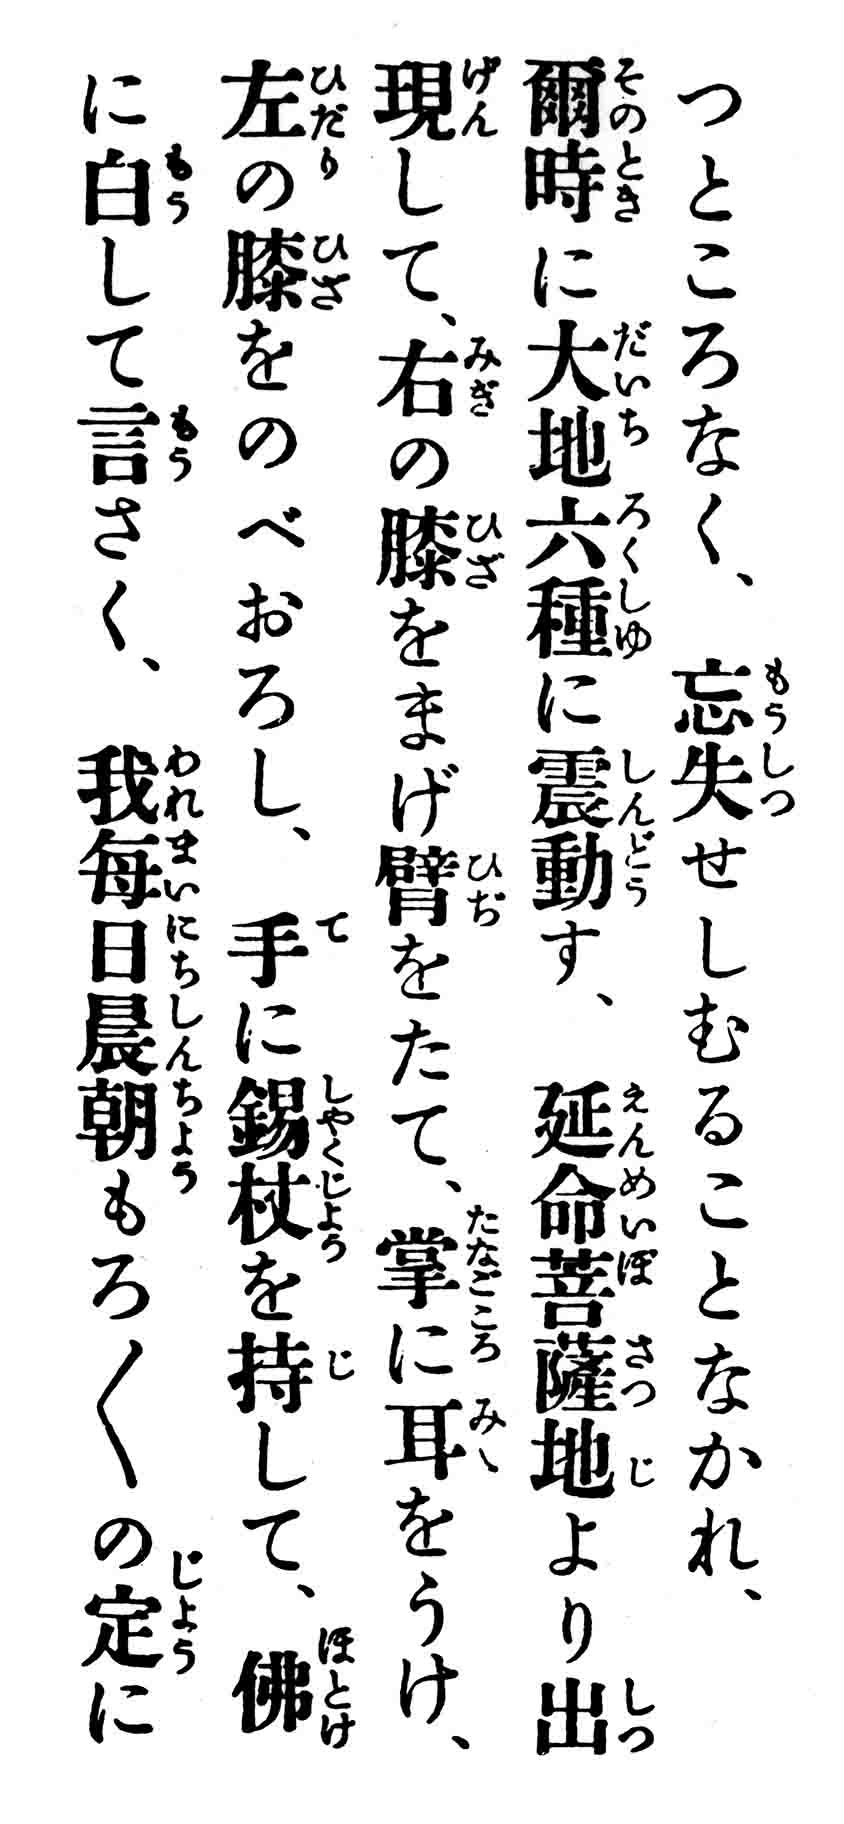 つところなく、忘失せしむることなかれ、
爾時に大地六種に震動す、延命菩薩地より出
現して、右の膝をまげ臂をたて、掌に耳をうけ、
左の膝をのべおろし、手に錫杖を持して、佛
に白して言さく、我每日晨朝もろ〱の定に